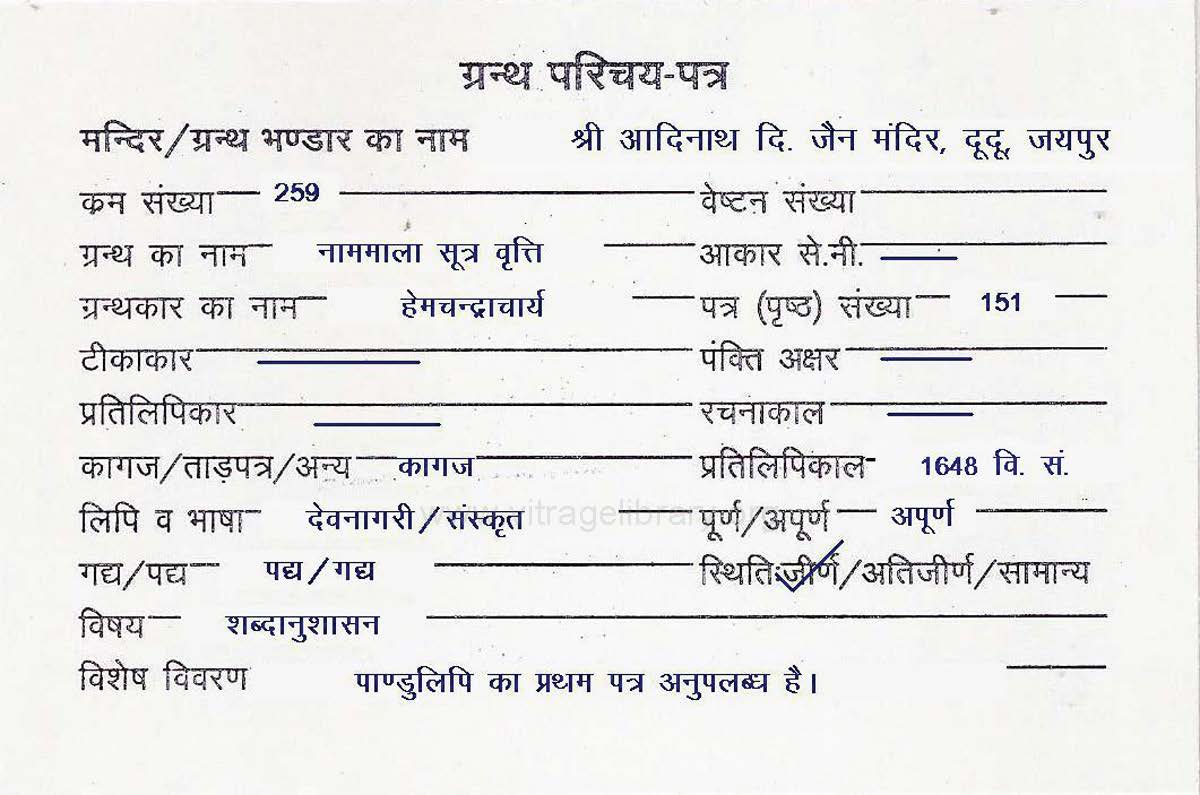 ग्रन्थ परिचय-पत्र
मन्दिर/ग्रन्थ भण्डार का नाम श्री आदिनाथ दि. जैन मंदिर, दूदू, जयपुर
क्रम संख्या 259 वेष्टन संख्या
ग्रन्थ का नाम नाममाला सूत्र वृत्ति आकार से.मी.
ग्रन्थकार का नाम हेमचन्द्राचार्य पत्र (पृष्ठ) संख्या 151
टीकाकार पंक्ति अक्षर
प्रतिलिपिकार रचनाकाल
कागज/ताड़पत्र/अन्य कागज प्रतिलिपिकाल 1648 वि. सं.
लिपि व भाषा देवनागरी/संस्कृत पूर्ण/अपूर्ण अपूर्ण
गद्य/पद्य पद्य/गद्य स्थितिःजीर्ण/अतिजीर्ण/सामान्य
विषय शब्दानुशासन
विशेष विवरण पाण्डुलिपि का प्रथम पत्र अनुपलब्ध है।